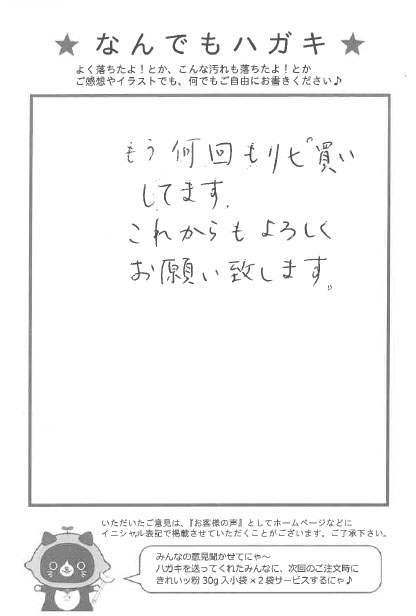 ★ なんでもハガキ ★
よく落ちたよ！とか、こんな汚れも落ちたよ！とか
ご感想やイラストでも、何でもご自由にお書きください♪
もう何回もリピ買い
してます。
これからもよろしく
お願い致します。
いただいたご意見は、『お客様の声』としてホームページなどに
イニシャル表記で掲載させていただくことがございます。ご了承下さい。
みんなの意見聞かせてにゃ～
ハガキを送ってくれたみんなに、次回のご注文時に
きれいッ粉30g入小袋×2袋サービスするにゃ♪